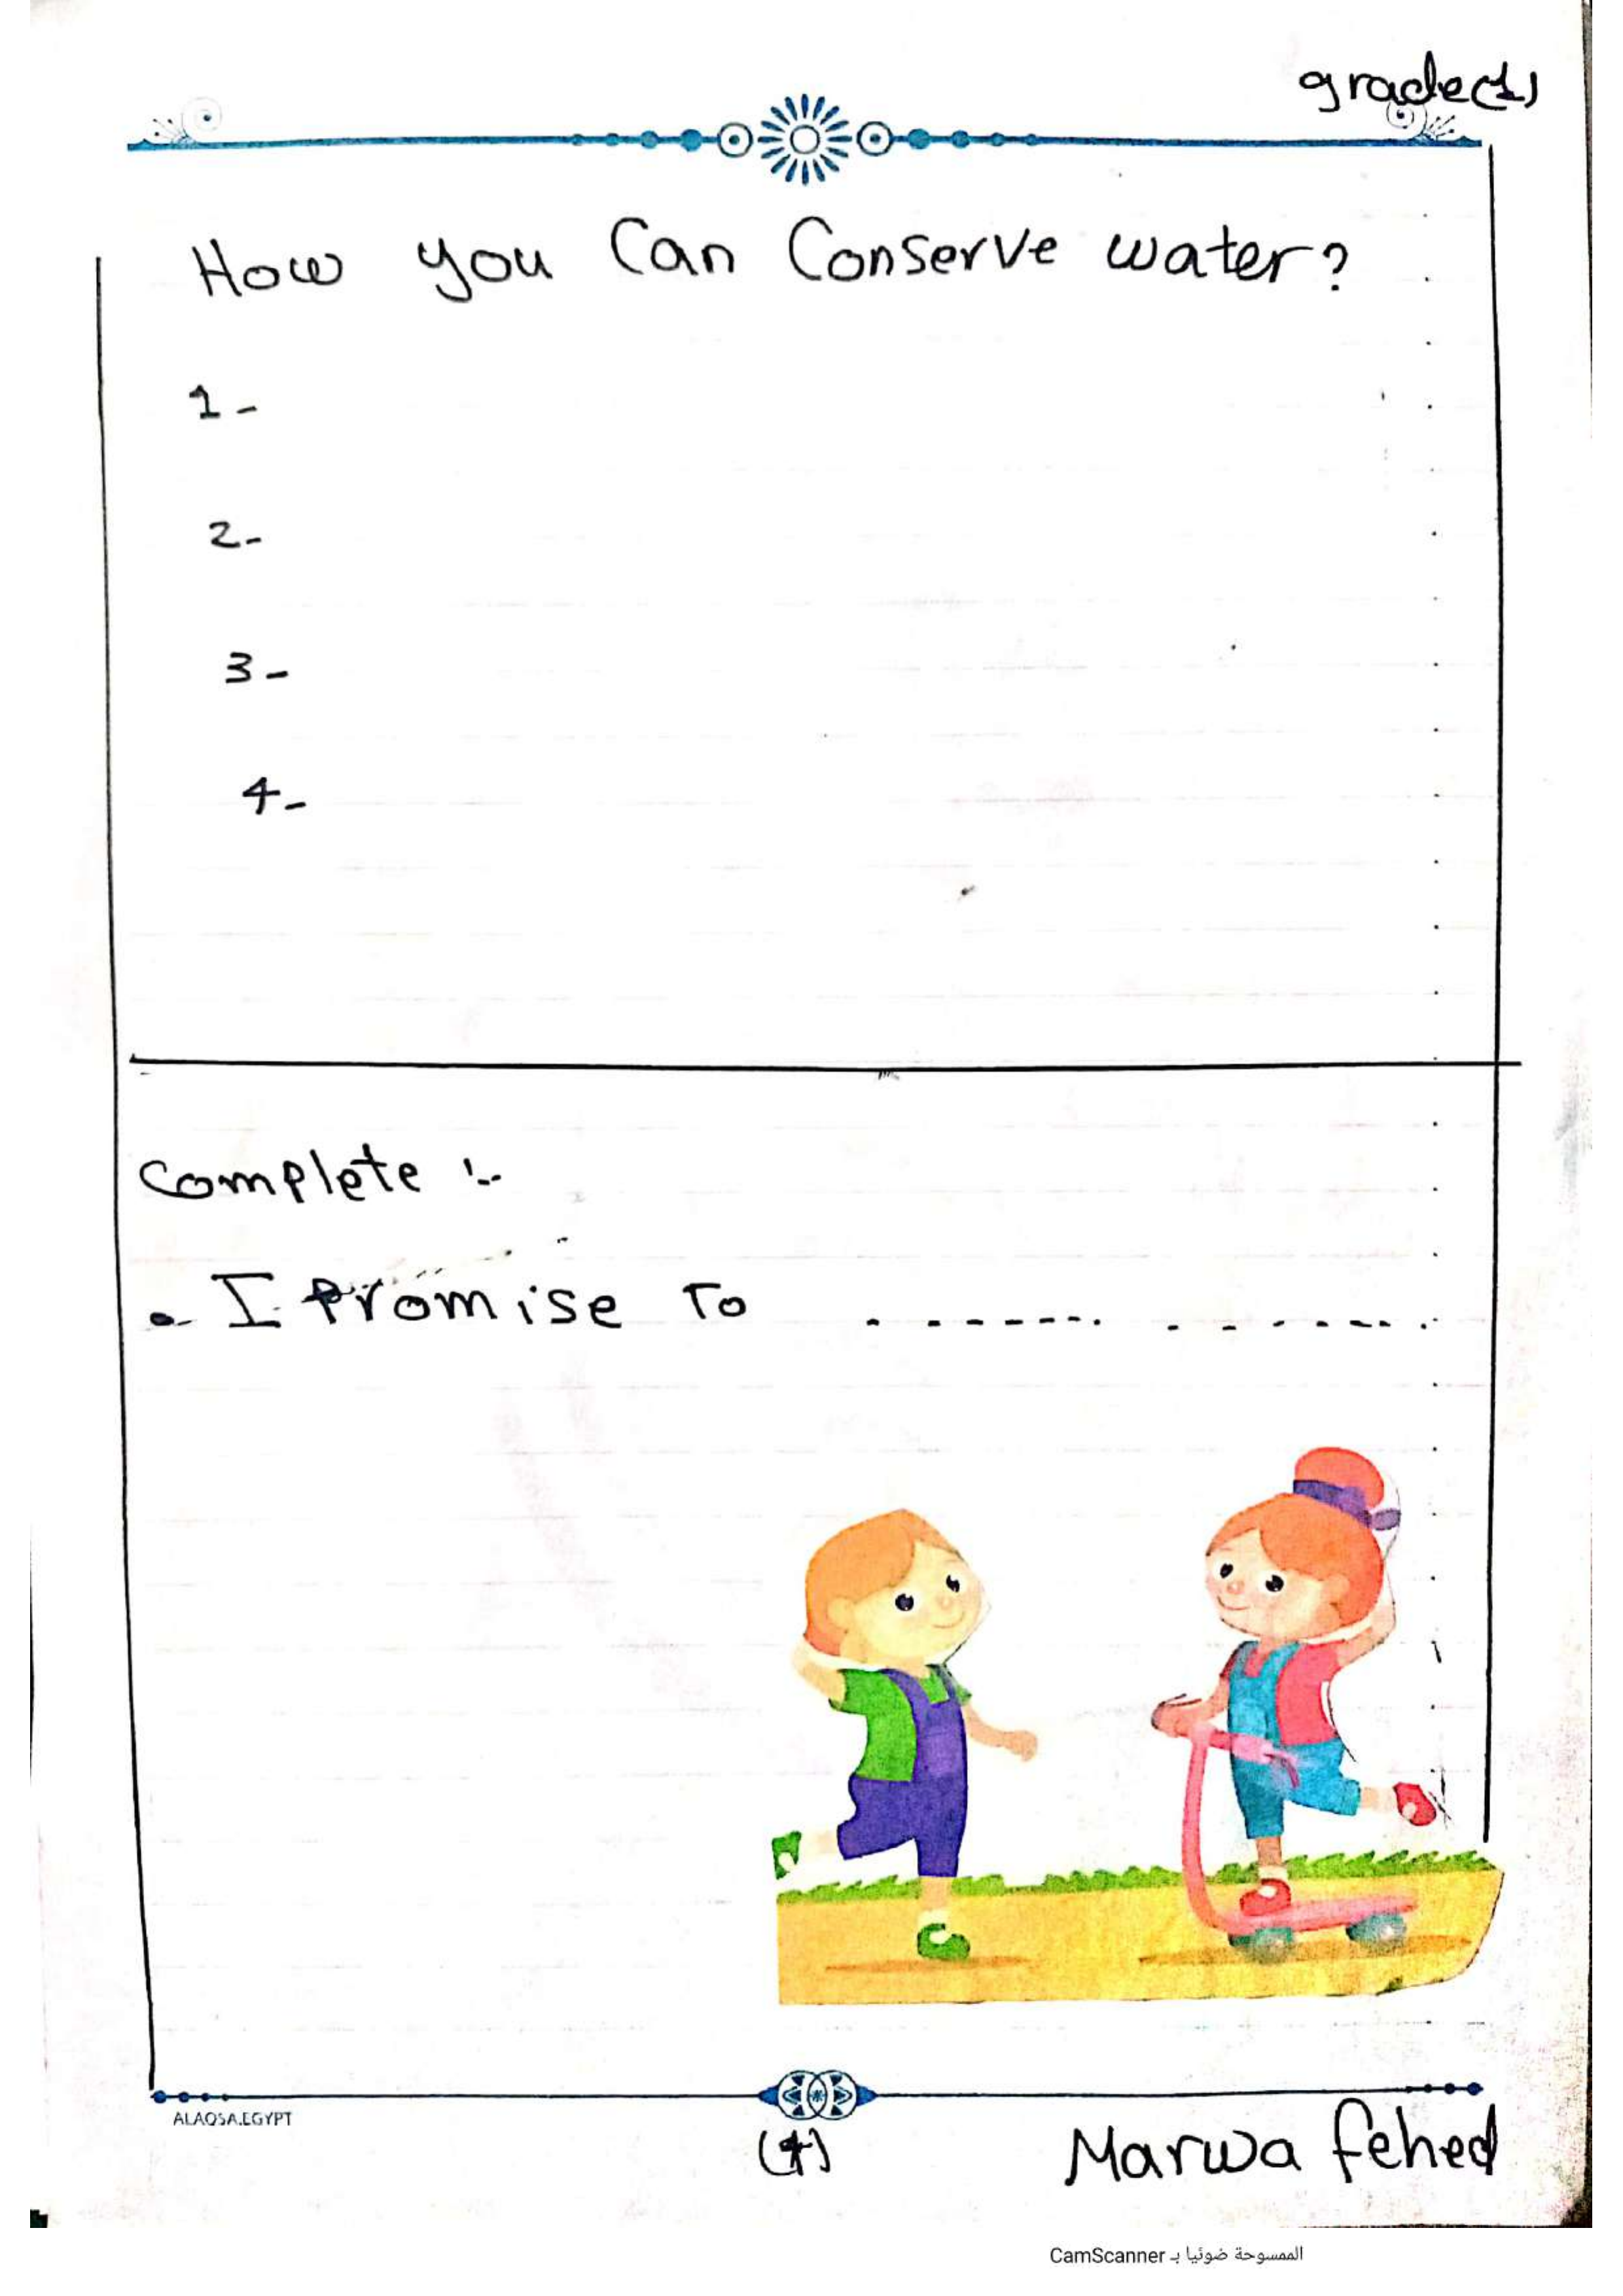 grade(1)
How you Can Conserve water?
1-
2-
3-
4-
Complete :-
. I Promise To ..................
ALAQSA.EGYPT
(4)
Marwa fehed
الممسوحة ضوئيا بـ CamScanner